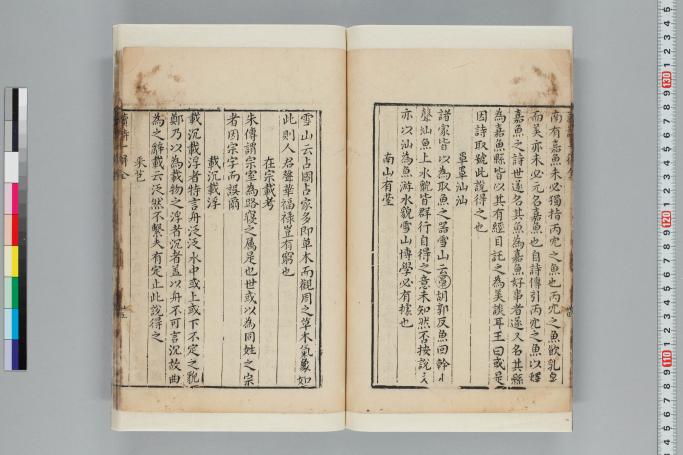 南有嘉魚未必獨指丙穴之魚也丙穴之魚飲乳
而美亦未必元名嘉魚也自詩傳引丙穴之魚以釋
嘉魚之詩世遂名其魚為嘉魚好事者遂又名其縣
為嘉魚縣皆以其有經目託之為美談耳王曰或是
因詩取號此說得之也
罩罩汕汕
諸家皆以為取魚之器雪山云罩訓郭反魚回幹
聲汕魚上水貌皆群行自得之意未知然否按說文
亦以汕為魚游水貌雪山博學必有據也
南山有臺
雪山云占國占家多即草木而觀周之草木氣象如
此則人君聲華福祿豈有窮也
在宗載考
朱傳謂宗室為路寢之屬是也世或以為同姓之宗
者因宗字而誤爾
載沉載浮
載沉載浮者特言舟泛泛水中或上或下不定之貌
鄭乃以為載物之浮者沉者蓋以舟不可言沉故曲
為之辭載云泛然不繫夫有定止此說得之
采芑